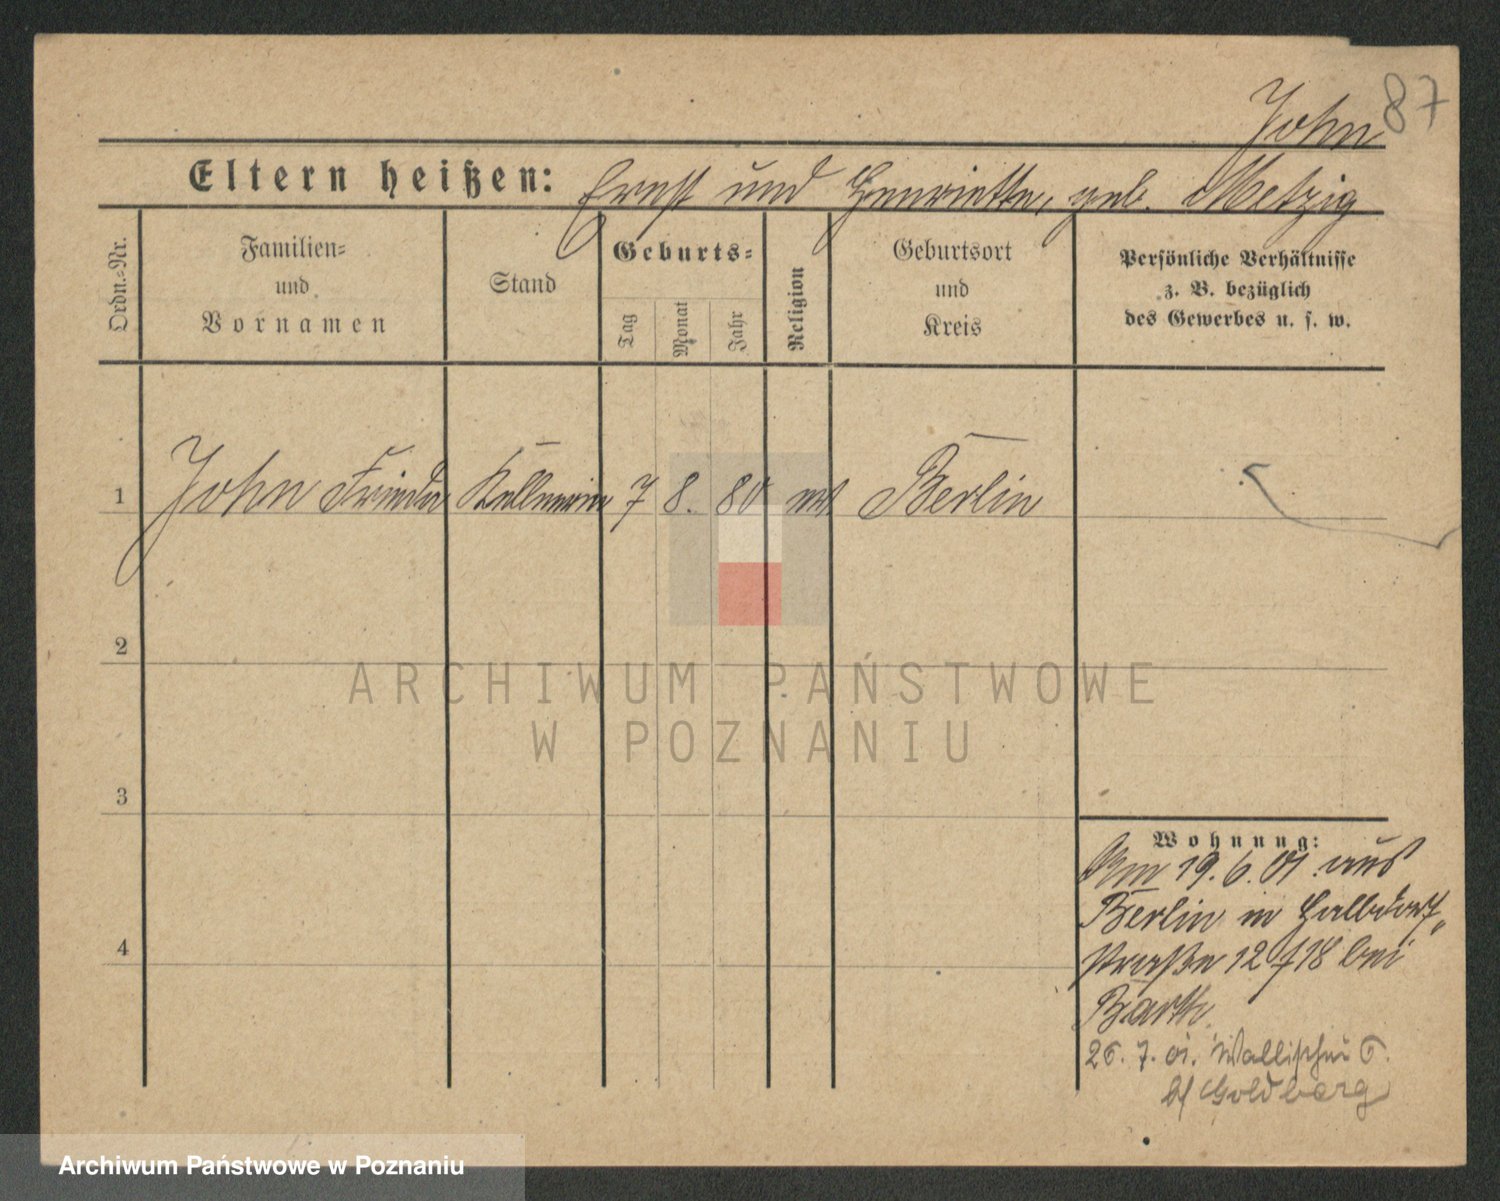 87
John
Eltern heißen: Ernst und Henriette, geb. Metzig
Ordn.-Nr.
Familien-
und
Vornamen
Stand
Geburts-
Tag
Monat
Jahr
Religion
Geburtsort
und
Kreis
Persönliche Verhältnisse
z. B. bezüglich
des Gewerbes u. s. w.
1 John Frieda Kellnerin 7 8. 80 Berlin
2
3
4
ARCHIWUM PAŃSTWOWE
W POZNANIU
Wohnung:
Am 19. 6. 01 aus
Berlin in Halbdorf-
straße 12 f 18 bei
Barth.
26. 7. 01. Wallischei 6.
b/ Goldberg
Archiwum Państwowe w Poznaniu